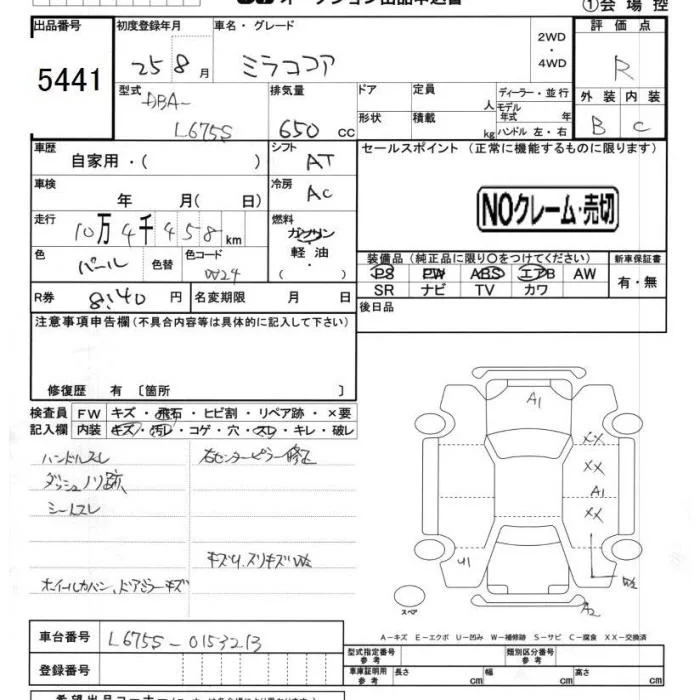 オークション出品申込書
①会場控
出品番号 初度登録年月 車名・グレード 評価点
5441 25 8月 ミラココア 2WD ・ 4WD R
型式 排気量 ドア 定員 ディーラー・並行 外装 内装
DBA- L675S 650 cc 形状 積載 人 kg モデル年式 年 ハンドル 左・右 B C
車歴 シフト セールスポイント (正常に機能するものに限ります)
自家用・( ) AT
車検 冷房
年 月( 日) AC
NOクレーム・売切
走行 燃料
10万4千458km ガソリン
色 色替 色コード 軽油 装備品(純正品に限り○をつけてください) 新車保証書
パール W24 ・( ) PS PW ABS エアB AW 有・無
R券 8,140円 名変期限 月 日 SR ナビ TV カワ
後日品
注意事項申告欄(不具合内容等は具体的に記入して下さい)
修復歴 有 〔箇所 〕
検査員 FW キズ・飛石・ヒビ割・リペア跡・×要
記入欄 内装 キズ・汚レ・コゲ・穴・スレ・キレ・破レ
ハンドルスレ 右センターピラー修正
ダッシュノリ跡
シートスレ
キズU、スリキズW2
ホイールカバー、ドアミラーキズ
A1
XX
XX
A1
XX
U1
W2
A2
スペア
A−キズ E−エクボ U−凹み W−補修跡 S−サビ C−腐食 XX−交換済
車台番号 L675S-0153213
型式指定番号 参考 類別区分番号 参考
登録番号 車庫証明用 参考 長さ cm 幅 cm 高さ cm